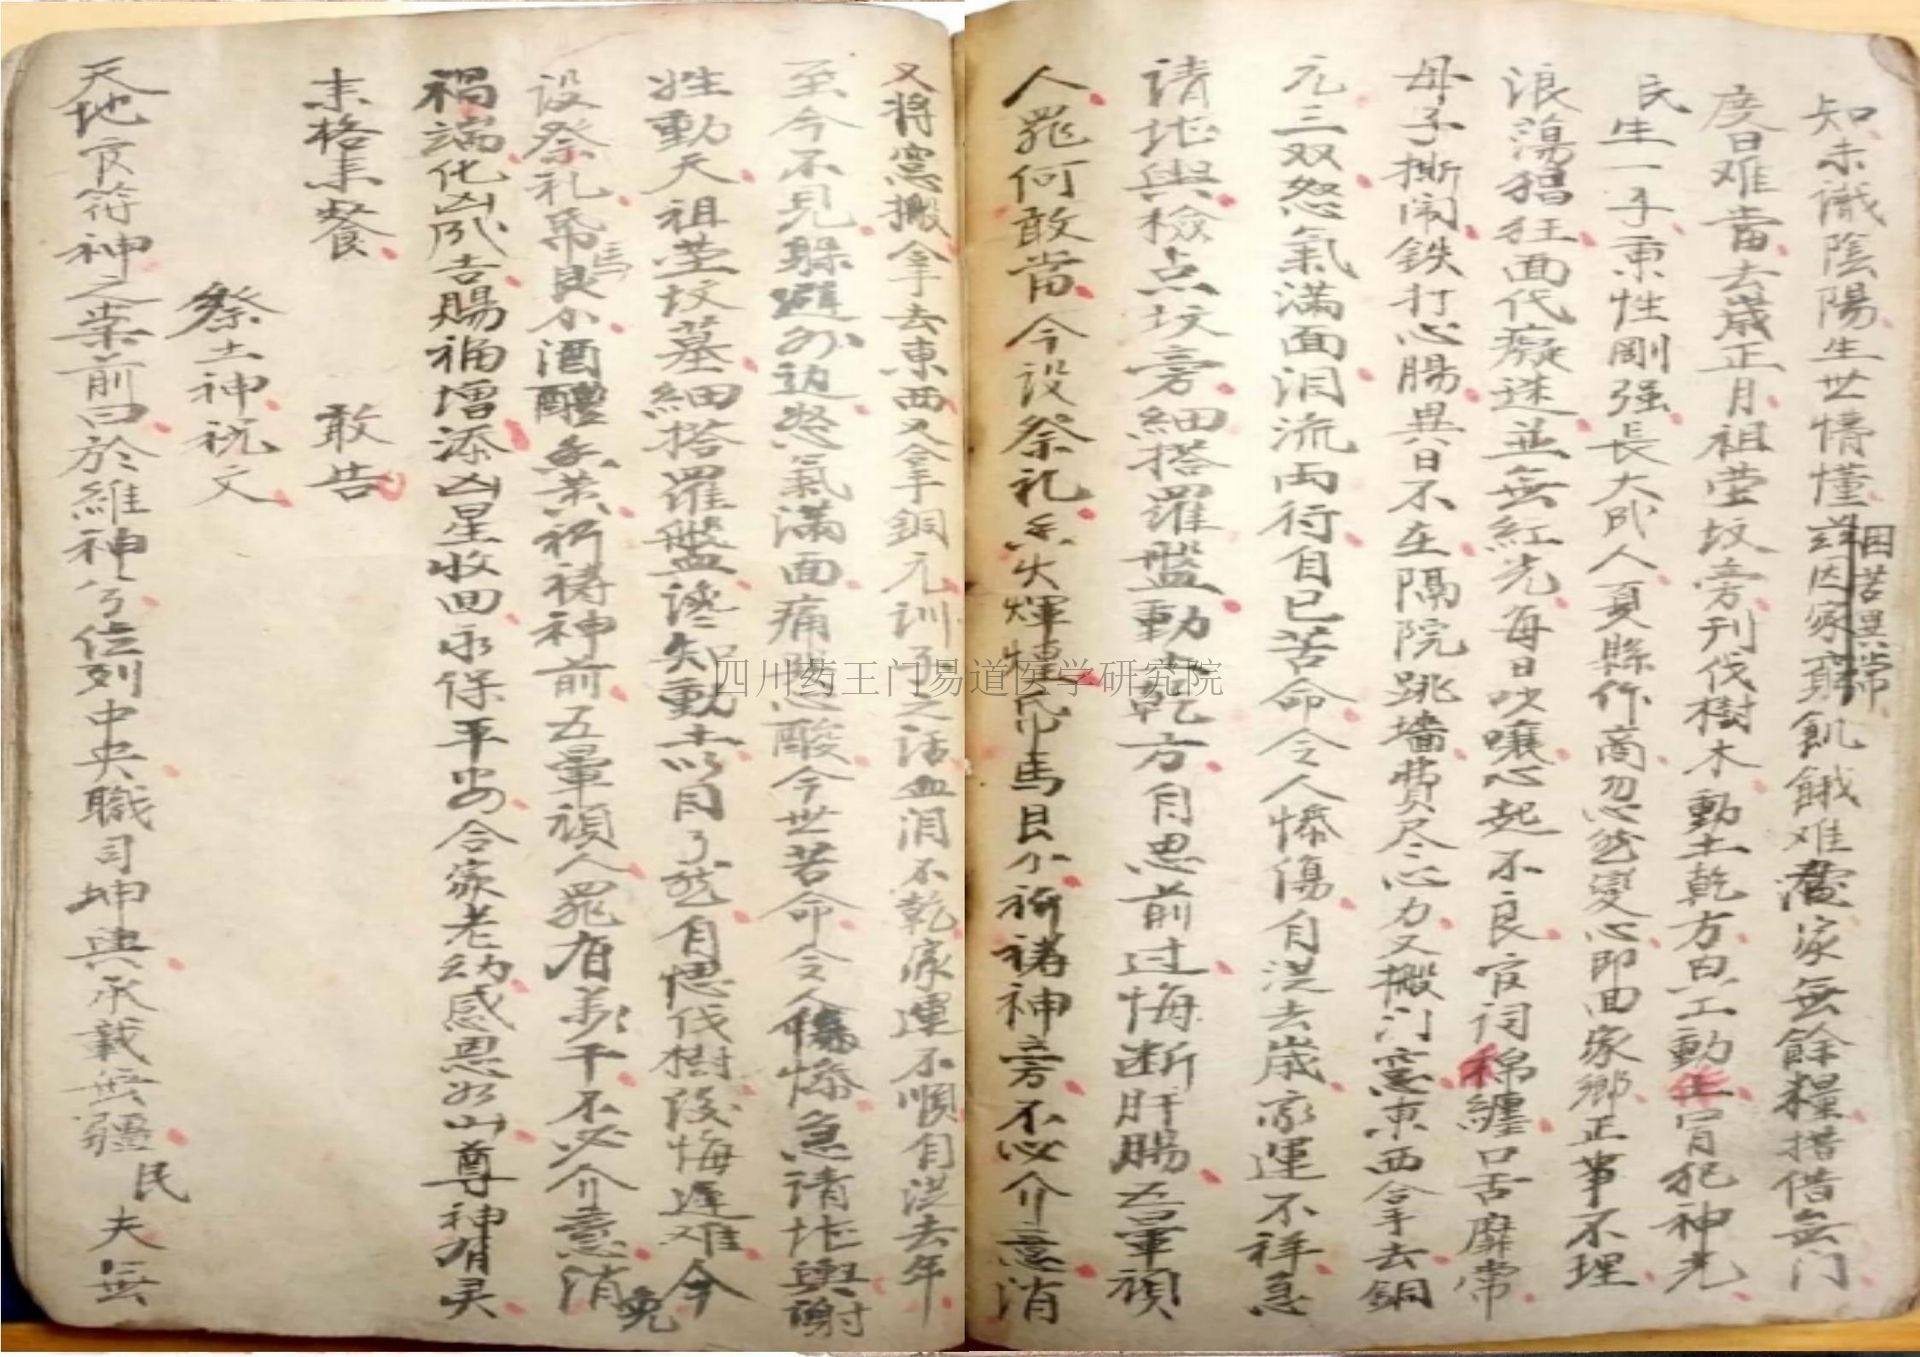 知未識陰陽生世情懂兹因家窮飢餓难當家無餘糧措借無门
困苦異常
度日难當去歲正月祖塋坟旁刊伐樹木動土乾方息工動土冐犯神光
民生一子東性剛强長大成人夏縣作商忽然變心即回家鄉正事不理
浪蕩猖狂面代癡迷並無紅光每日吹嚷心起不良官词綿纏口舌靡常
母子撕闹鉄打心腸異日不在隔院跳墙費尽心力又搬门窓東西拿去銅
元三双怒氣滿面泪流両行自己苦命令人慘傷自洪去歳家運不祥急
请堪輿檢点坟旁細搭羅盤動土乾方自思前过悔断肝腸五暈頑
人罪何敢當今设祭礼香火煇煌帋馬艮小祈禱神旁不必介意消
又将窓搬拿去東西又拿銅元训子之话血泪不乾家運不順自洪去年
至今不見躲避外边怒氣滿面痛腸心酸今世苦命令人傷慘急请堪輿謝
姓動天祖塋坟墓細搭羅盤讒知動土以自了然自思伐樹後悔遲难今
设祭礼帋馬艮小酒醴香㶵祈祷神前五暈頑人罪有若干不必介意消免
禍端化凶成吉賜福增添凶星收回永保平安合家老幼感恩如山尊神有灵
来格来餐　敢告
祭土神祝文
天地官符神之案前曰於維神兮位列中央職司坤輿承載無疆民夫無
四川药王门易道医学研究院